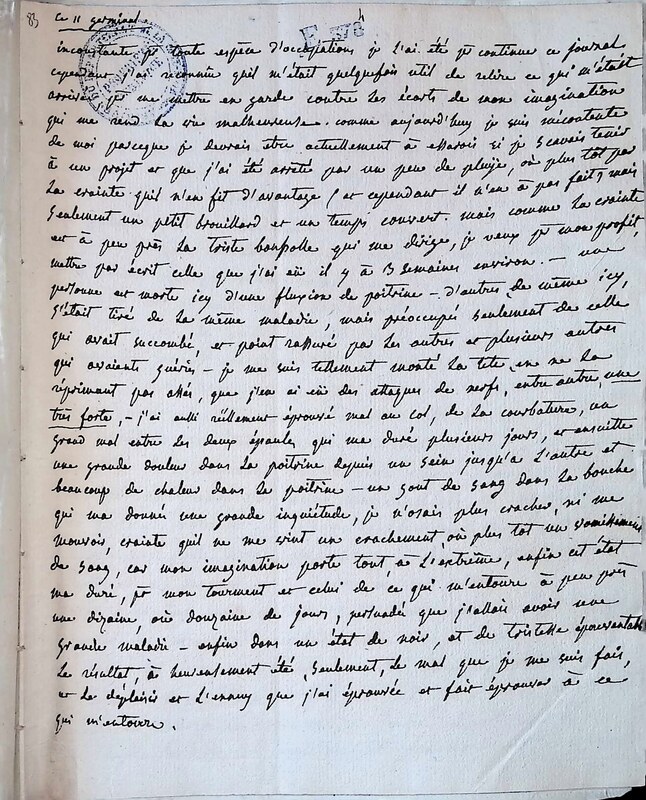 83 ce 11 germinal 4 F 376
inconstante pr toute espèce d'occupations je l'ai été pr continue ce journal
cependant j'ai reconnue quil m'était quelquefois util de relire ce qui m'était
arrivé pr me mettre en garde contre les écarts de mon imagination
qui me rend la vie malheureuse. comme aujourd'huy je suis mécontente
de moi parceque je devrais être actuellement à essarois si je scavais tenir
à un projet et que j'ai été arrêté par un peu de pluije, où plus tot par
la crainte quil n'en fit d'avantage (et cependant il n'en à pas fait, mais
seulement un petit brouillard et un temps couvert. mais comme la crainte
est à peu près la triste boussolle qui me dirige, je veux pr mon profit
mettre par écrit celle que j'ai eû il y à 3 semaines environ. – une
personne est morte icy d'une fluxion de poitrine – d'autres de même icy,
s'était tiré de la même maladie, mais préoccupée seulement de celle
qui avait succombé, et point rassuré par les autres et plusieurs autres
qui avaients guéries – je me suis tellement monté la tête, en ne la
réprimant pas assés, que j'en ai eû des attaques de nerfs, entre autre, une
très forte, – j'ai aussi réellement éprouvé mal au col, de la courbature, un
grand mal entre les deux épaules, qui ma duré plusieurs jours, et ensuitte
une grande douleur dans la poitrine depuis un sein jusqu'à l'autre et
beaucoup de chaleur dans la poitrine – un gout de sang dans la bouche
qui ma donnée une grande inquiétude, je n'osais plus cracher, ni me
mouvoir, crainte quil ne me vint un crachement, où plus tot un vomissement
de sang, car mon imagination porte tout à l'extrême, enfin cet état
ma duré, pr mon tourment et celui de ce qui m'entoure à peu près
une dizaine, où douzaine de jours, persuadée que j'allais avoir une
grande maladie – enfin dans un état de noir, et de tristesse épouvantable
le résultat, à heureusement été, seulement, le mal que je me suis fais,
et le déplaisir et l'ennuy que j'ai éprouvée et fait éprouver à ce
qui m'entoure.